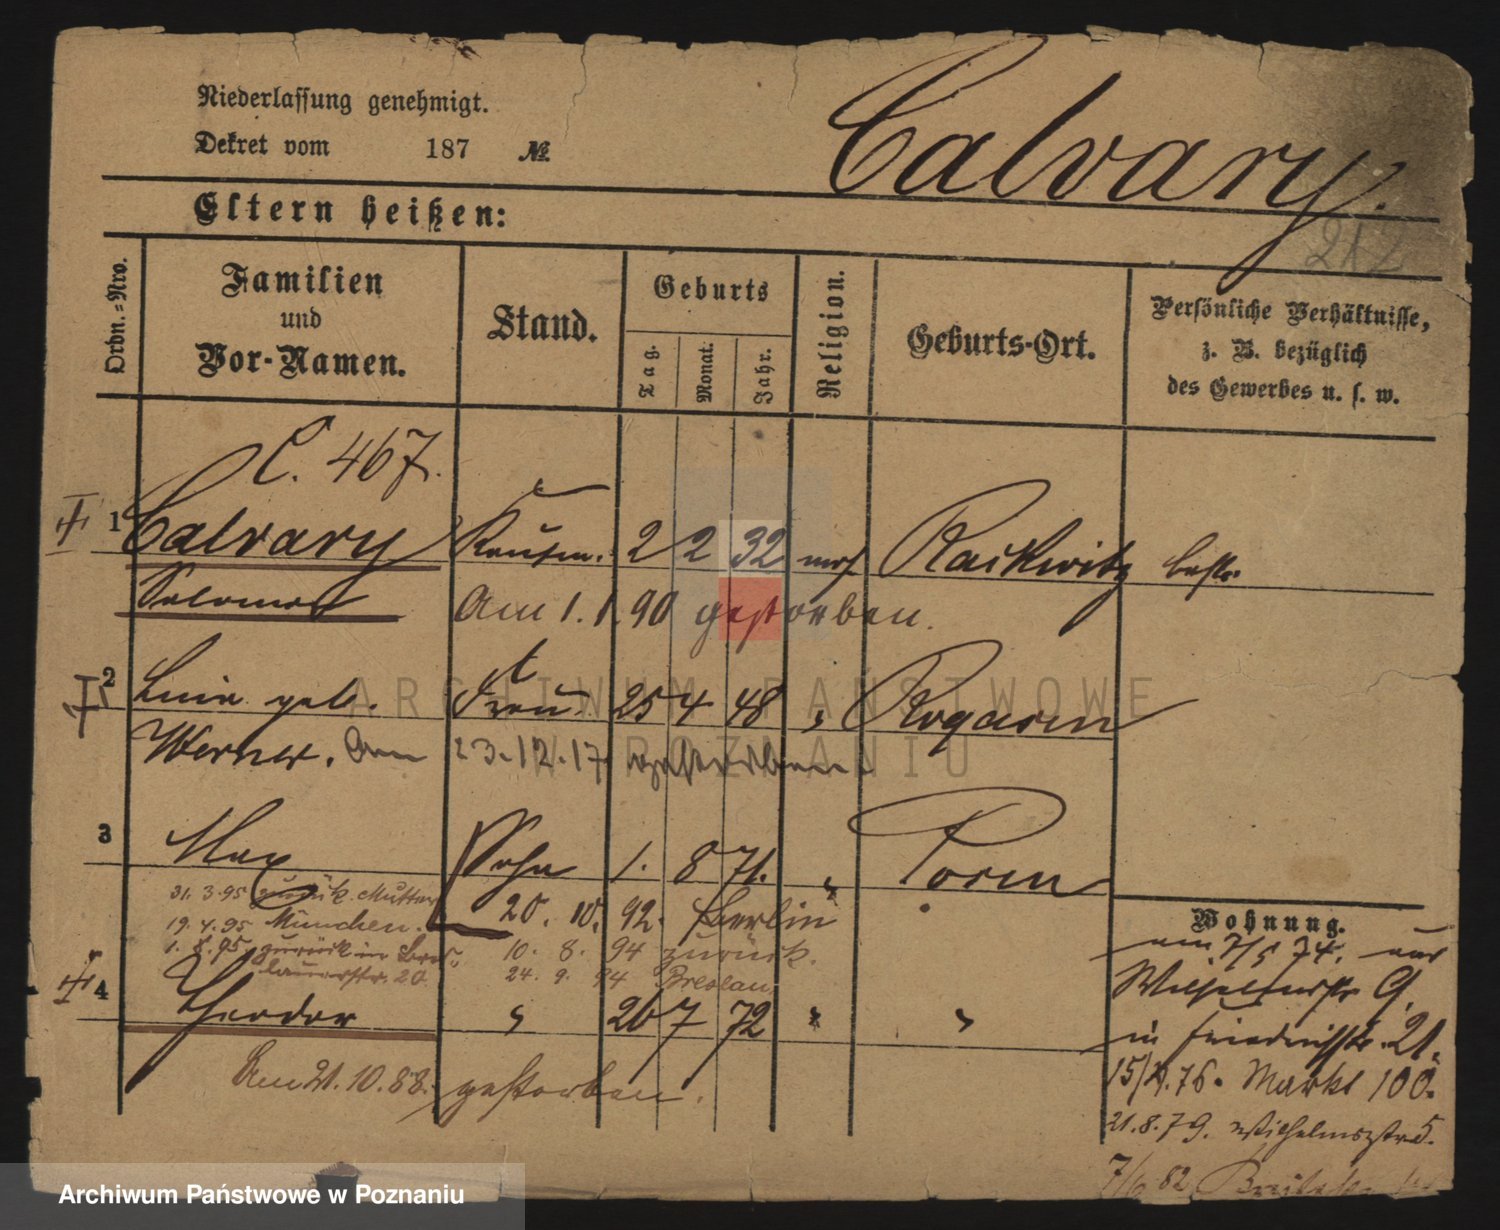 Niederlassung genehmigt.
Dekret vom 187 №
Calvary.
212
Eltern heißen:
Ordn.=Nro.
Familien
und
Vor-Namen.
Stand.
Geburts
Tag.
Monat.
Jahr.
Religion.
Geburts-Ort.
Persönliche Verhältnisse,
z. B. bezüglich
des Gewerbes u. s. w.
C. 467.
1 Calvary Kaufm. 2 2 32 mos Rackwitz
Salomon Am 1. 1. 90 gestorben.
2 geb. Frau 25 4 48 Rogasen
Werner. Am 23.12.17 gestorben
3 Max Sohn 1. 8 71. Posen
31. 3. 95 zurück. Mutter 20. 10. 92. Berlin
19. 4. 95 München. 10. 8. 94 zurück.
1. 8. 95 zurück in Bres- 24. 9. 94 Breslau
lauerstr. 20
4 Theodor 26 7 72
Am 21. 10. 88. gestorben.
Wohnung.
am 7/5 74. aus
Wilhelmstr 9.
in Friedrichstr. 21.
15/4.76. Markt 100.
21.8.79. Wilhelmsstr 5.
82 Breitestr
ARCHIWUM PAŃSTWOWE
W POZNANIU
Archiwum Państwowe w Poznaniu